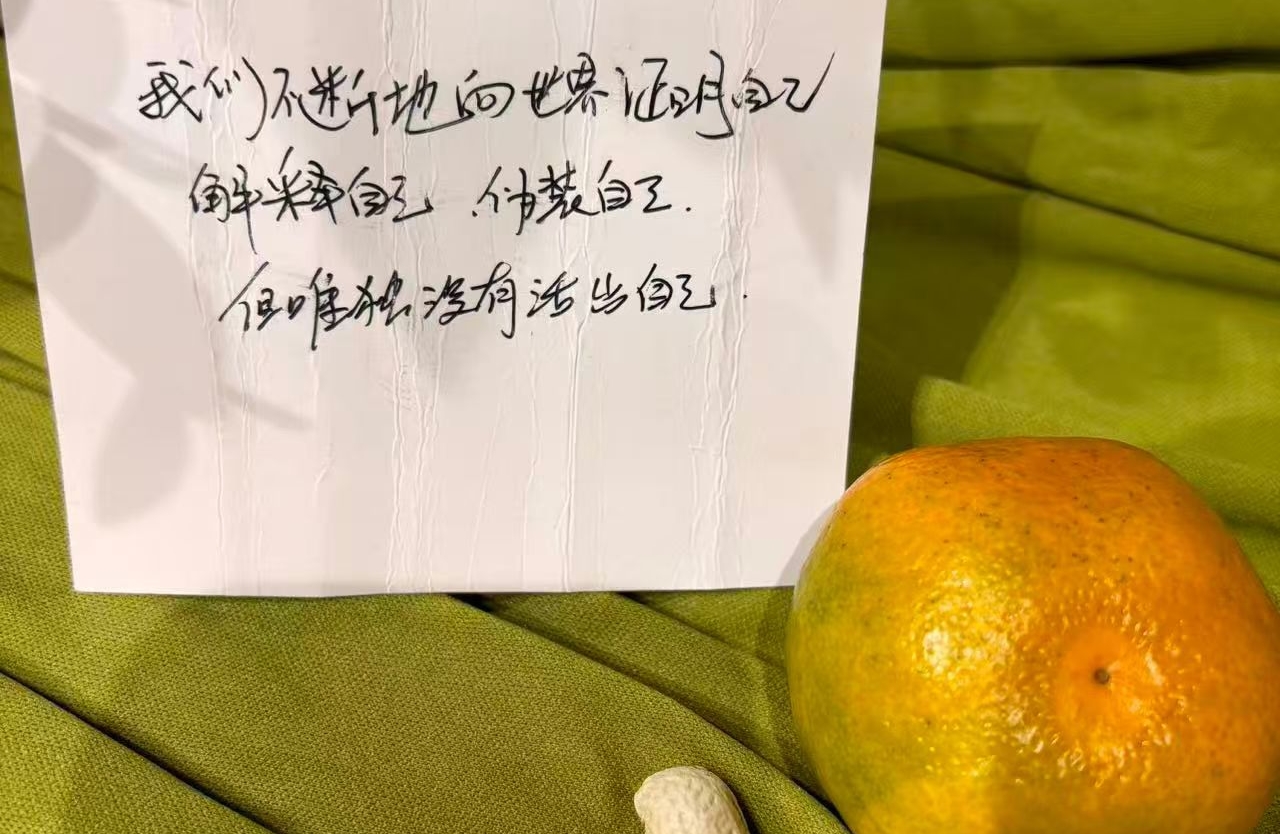 我们不断地向世界证明自己
解释自己、伪装自己.
但唯独没有活出自己.